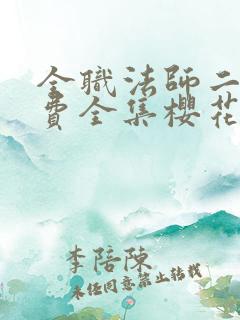 全職法師二
費全集櫻花
李陪陳
未经同意禁止转载